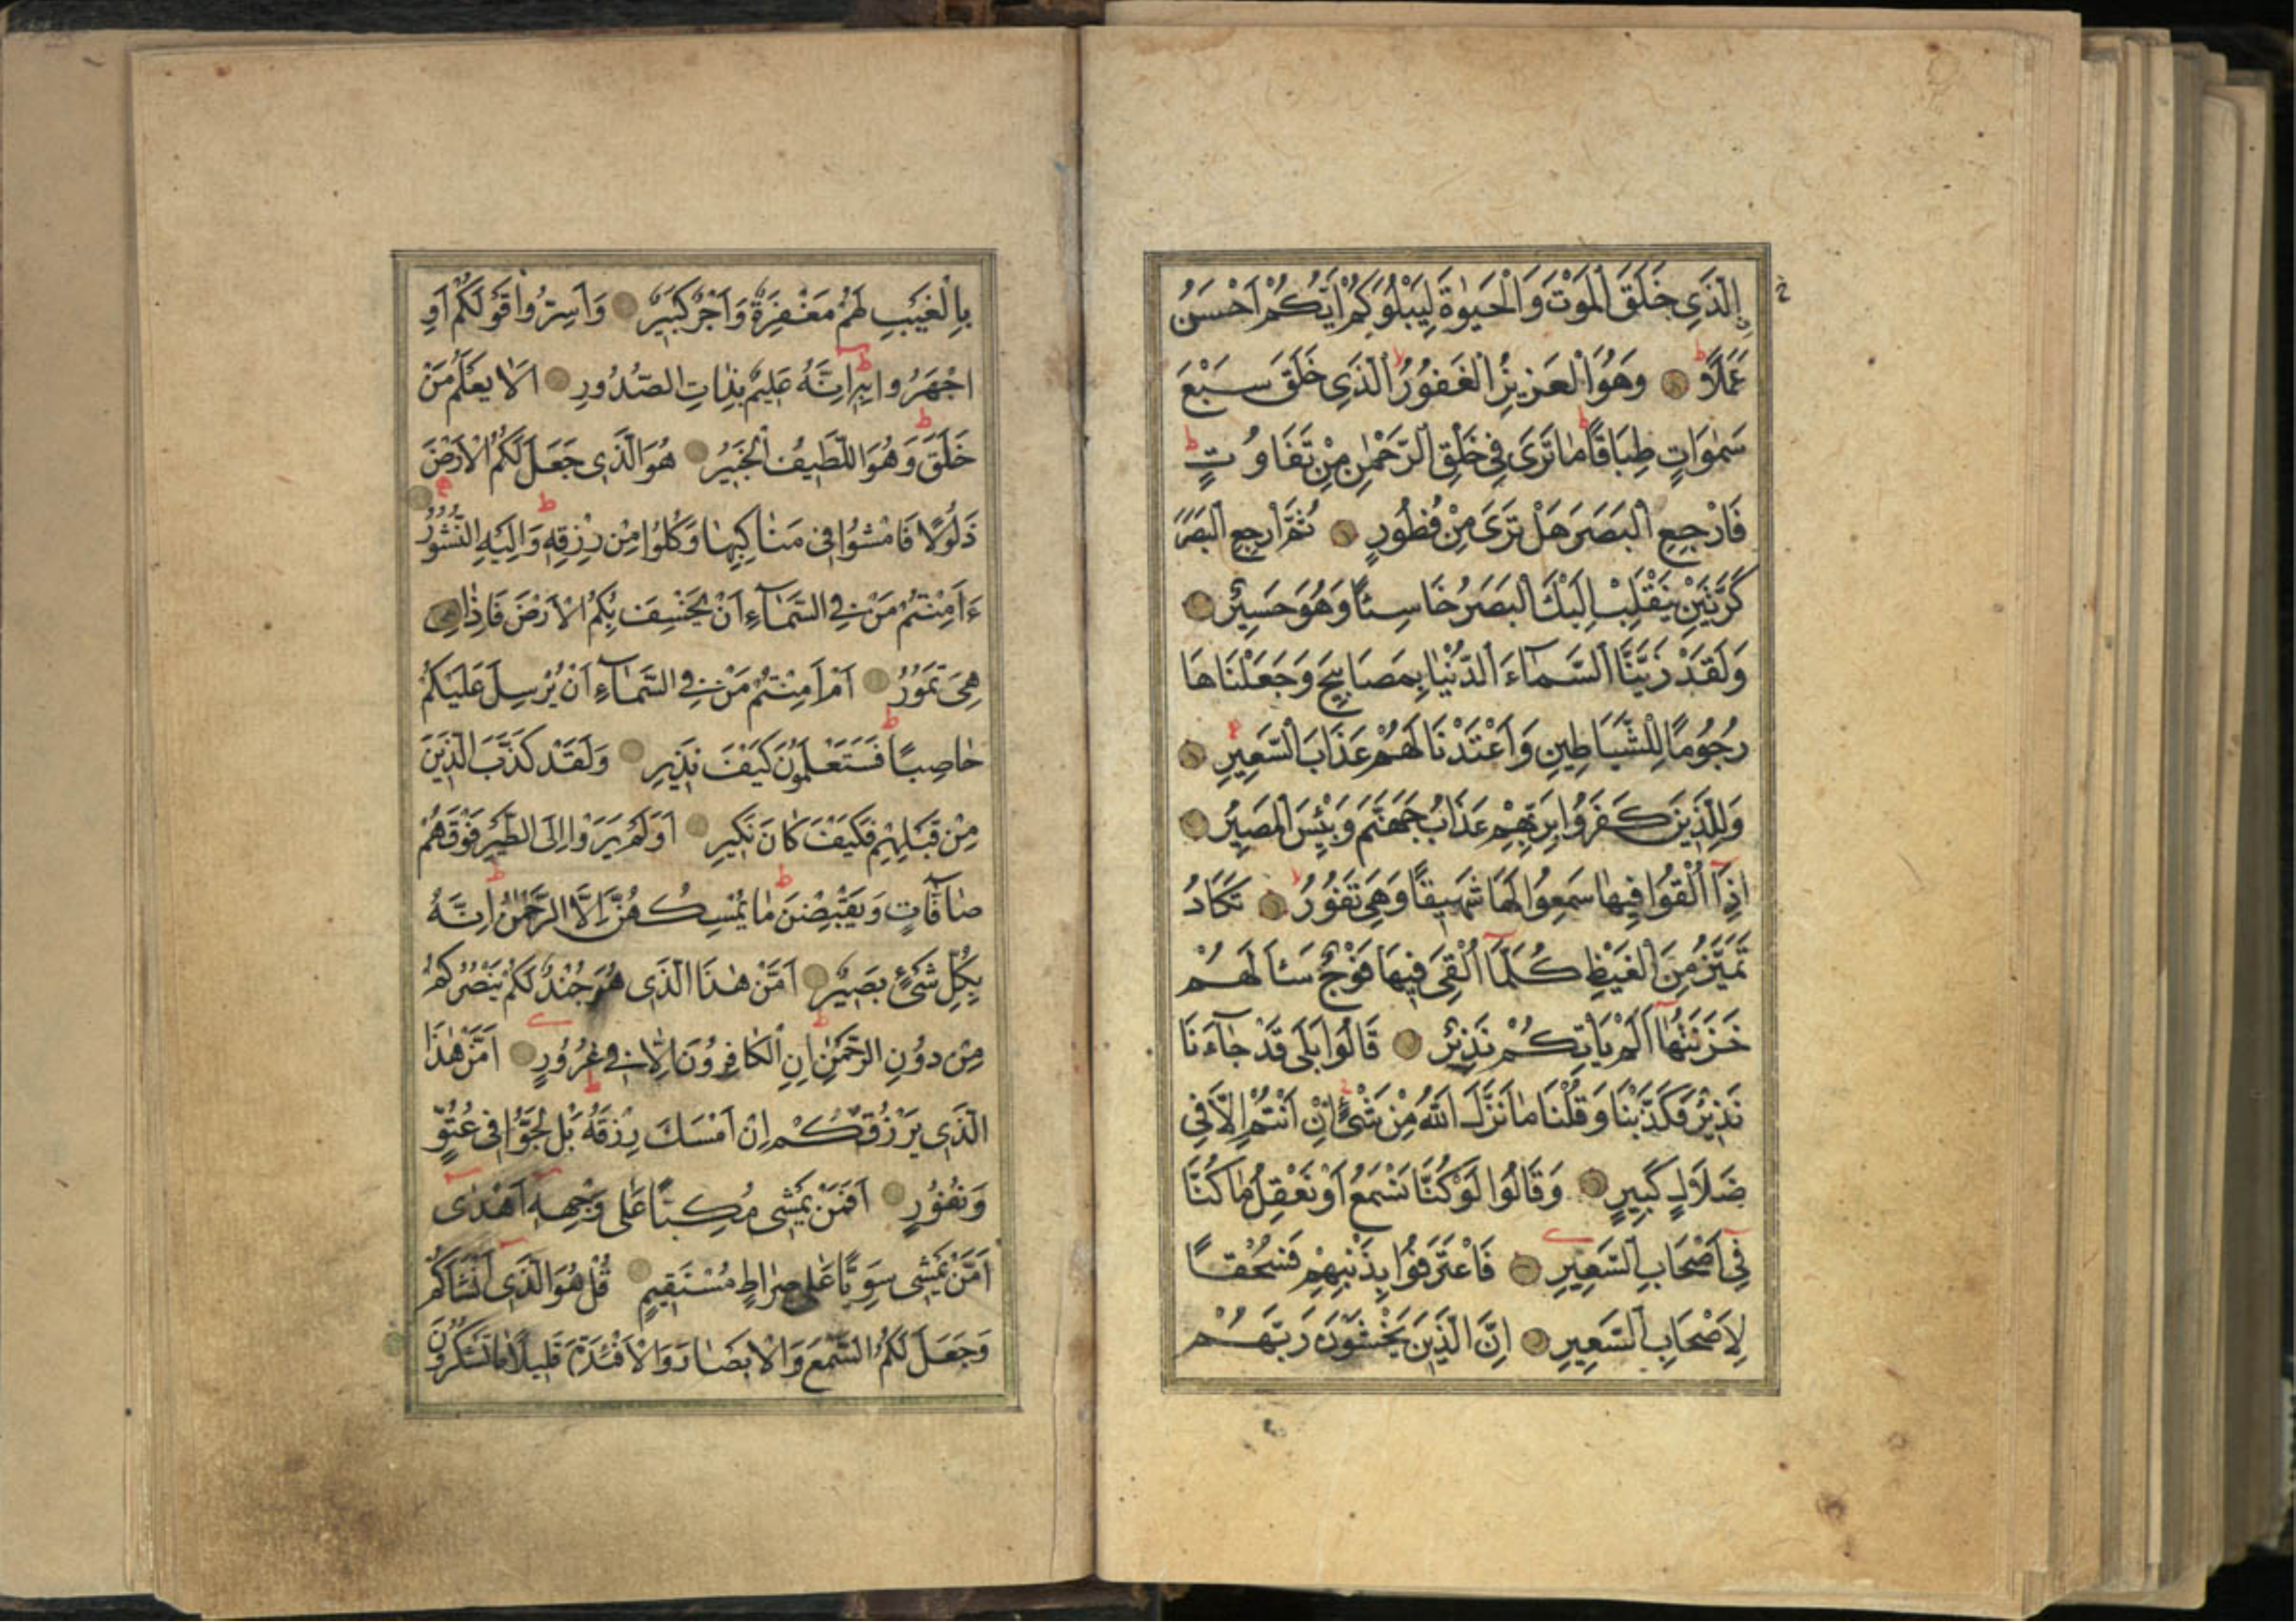 اِلَّذَى خَلَقَ الْمَوْتَ وَالْحَيٰوةَ لِيَبْلُوَكُمْ اَيُّكُمْ اَحْسَنُ
عَمَلًا وَهُوَ الْعَزِيزُ الْغَفُورُ الَّذَى خَلَقَ سَبْعَ
سَمٰوَاتٍ طِبَاقًا مَا تَرَى فِى خَلْقِ الرَّحْمٰنِ مِنْ تَفَاوُتٍ
فَارْجِعِ الْبَصَرَ هَلْ تَرَى مِنْ فُطُورٍ ثُمَّ ارْجِعِ الْبَصَرَ
كَرَّتَيْنِ يَنْقَلِبْ اِلَيْكَ الْبَصَرُ خَاسِئًا وَهُوَ حَسِيرٌ
وَلَقَدْ زَيَّنَّا السَّمَآءَ الدُّنْيَا بِمَصَابِيحَ وَجَعَلْنَاهَا
رُجُومًا لِلشَّيَاطِينِ وَاَعْتَدْنَا لَهُمْ عَذَابَ السَّعِيرِ
وَلِلَّذِينَ كَفَرُوا بِرَبِّهِمْ عَذَابُ جَهَنَّمَ وَبِئْسَ الْمَصِيرُ
اِذَآ اُلْقُوا فِيهَا سَمِعُوا لَهَا شَهِيقًا وَهِىَ تَفُورُ تَكَادُ
تَمَيَّزُ مِنَ الْغَيْظِ كُلَّمَآ اُلْقِىَ فِيهَا فَوْجٌ سَئَاَلَهُمْ
خَزَنَتُهَآ اَلَمْ يَاْتِكُمْ نَذِيرٌ قَالُوا بَلَى قَدْ جَآءَنَا
نَذِيرٌ فَكَذَّبْنَا وَقُلْنَا مَا نَزَّلَ اللهُ مِنْ شَىْءٍ اِنْ اَنْتُمْ اِلَّا فِى
ضَلَالٍ كَبِيرٍ وَقَالُوا لَوْ كُنَّا نَسْمَعُ اَوْ نَعْقِلُ مَا كُنَّا
فِىٓ اَصْحَابِ السَّعِيرِ فَاعْتَرَفُوا بِذَنْبِهِمْ فَسُحْقًا
لِاَصْحَابِ السَّعِيرِ اِنَّ الَّذِينَ يَخْشَوْنَ رَبَّهُمْ
بِالْغَيْبِ لَهُمْ مَغْفِرَةٌ وَاَجْرٌ كَبِيرٌ وَاَسِرُّوا قَوْلَكُمْ اَوِ
اجْهَرُوا بِهِ اِنَّهُ عَلِيمٌ بِذَاتِ الصُّدُورِ اَلَا يَعْلَمُ مَنْ
خَلَقَ وَهُوَ اللَّطِيفُ الْخَبِيرُ هُوَ الَّذِى جَعَلَ لَكُمُ الْاَرْضَ
ذَلُولًا فَامْشُوا فِى مَنَاكِبِهَا وَكُلُوا مِنْ رِزْقِهِ وَاِلَيْهِ النُّشُورُ
ءَاَمِنْتُمْ مَنْ فِى السَّمَآءِ اَنْ يَخْسِفَ بِكُمُ الْاَرْضَ فَاِذَا هِىَ
هِىَ تَمُورُ اَمْ اَمِنْتُمْ مَنْ فِى السَّمَآءِ اَنْ يُرْسِلَ عَلَيْكُمْ
حَاصِبًا فَسَتَعْلَمُونَ كَيْفَ نَذِيرِ وَلَقَدْ كَذَّبَ الَّذِينَ
مِنْ قَبْلِهِمْ فَكَيْفَ كَانَ نَكِيرِ اَوَلَمْ يَرَوْا اِلَى الطَّيْرِ فَوْقَهُمْ
صَآفَّاتٍ وَيَقْبِضْنَ مَا يُمْسِكُهُنَّ اِلَّا الرَّحْمٰنُ اِنَّهُ
بِكُلِّ شَىْءٍ بَصِيرٌ اَمَّنْ هٰذَا الَّذِى هُوَ جُنْدٌ لَكُمْ يَنْصُرُكُمْ
مِنْ دُونِ الرَّحْمٰنِ اِنِ الْكَافِرُونَ اِلَّا فِى غُرُورٍ اَمَّنْ هٰذَا
الَّذِى يَرْزُقُكُمْ اِنْ اَمْسَكَ رِزْقَهُ بَلْ لَجُّوا فِى عُتُوٍّ
وَنُفُورٍ اَفَمَنْ يَمْشِى مُكِبًّا عَلَى وَجْهِهِ اَهْدٰى
اَمَّنْ يَمْشِى سَوِيًّا عَلَى صِرَاطٍ مُسْتَقِيمٍ قُلْ هُوَ الَّذِى اَنْشَاَكُمْ
وَجَعَلَ لَكُمُ السَّمْعَ وَالْاَبْصَارَ وَالْاَفْئِدَةَ قَلِيلًا مَا تَشْكُرُونَ